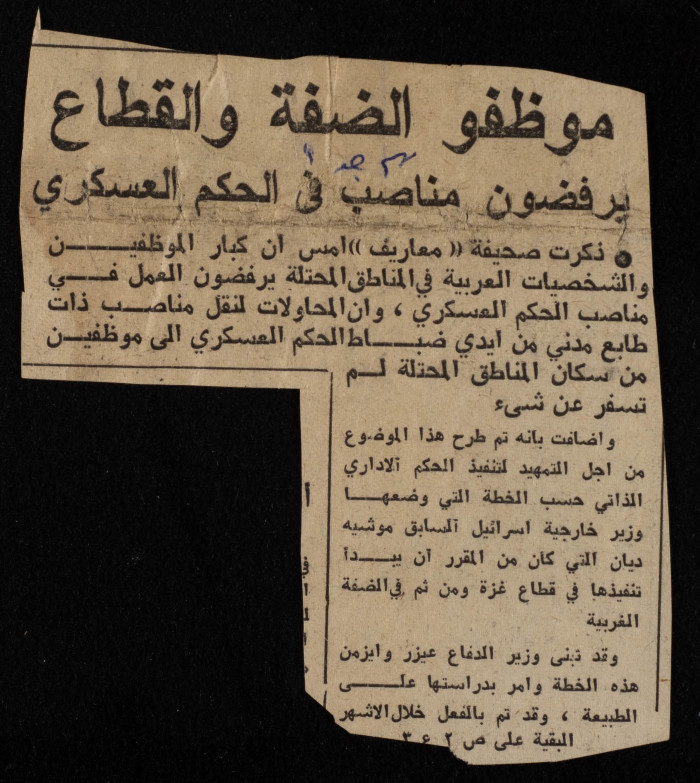 موظفو الضفة والقطاع
يرفضون مناصب في الحكم العسكري
● ذكرت صحيفة «معاريف» امس ان كبار الموظفين
والشخصيات العربية في المناطق المحتلة يرفضون العمل في
مناصب الحكم العسكري ، وان المحاولات لنقل مناصب ذات
طابع مدني من ايدي ضباط الحكم العسكري الى موظفين
من سكان المناطق المحتلة لم
تسفر عن شيء
واضافت بانه تم طرح هذا الموضوع
من اجل التمهيد لتنفيذ الحكم الاداري
الذاتي حسب الخطة التي وضعها
وزير خارجية اسرائيل السابق موشيه
ديان التي كان من المقرر ان يبدأ
تنفيذها في قطاع غزة ومن ثم في الضفة
الغربية
وقد تبنى وزير الدفاع عيزر وايزمن
هذه الخطة وامر بدراستها على
الطبيعة ، وقد تم بالفعل خلال الاشهر
البقية على ص ٢ ع ٣